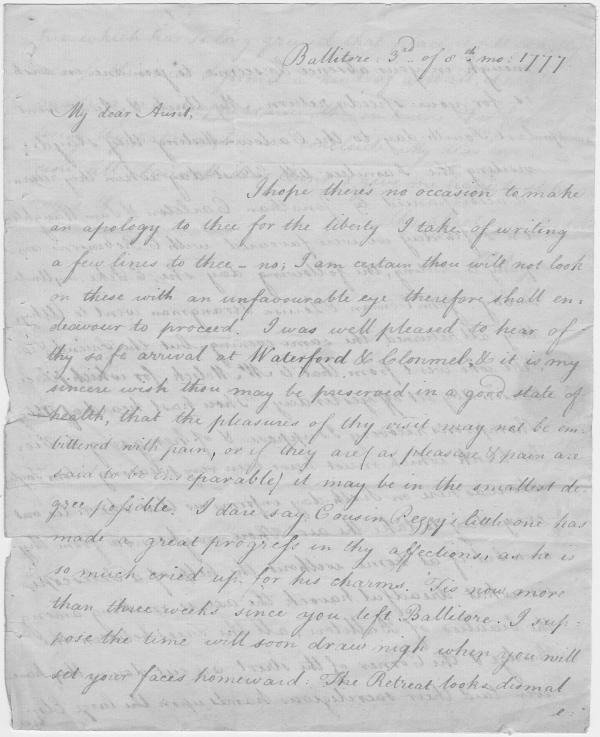 Ballitore: 3rd of 8th mo: 1777
My dear Aunt,
I hope there's no occasion to make
an apology to thee for the liberty I take of writing
a few lines to thee – no; I am certain thou will not look
on these with an unfavourable eye therefore shall en-
deavour to proceed. I was well pleased to hear of
thy safe arrival at Waterford & Clonmel, & it is my
sincere wish thou may be preserved in a good state of
health, that the pleasures of thy visit may not be em-
bittered with pain, or if they are (as pleasure & pain are
said to be inseparable) it may be in the smallest de-
gree possible. I dare say Cousin Peggy's little one has
made a great progress in thy affections, as he is
so much cried up, for his charms. 'Tis now more
than three weeks since you left Ballitore. I sup-
pose the time will soon draw nigh when you will
set your faces homeward: The Retreat looks dismal